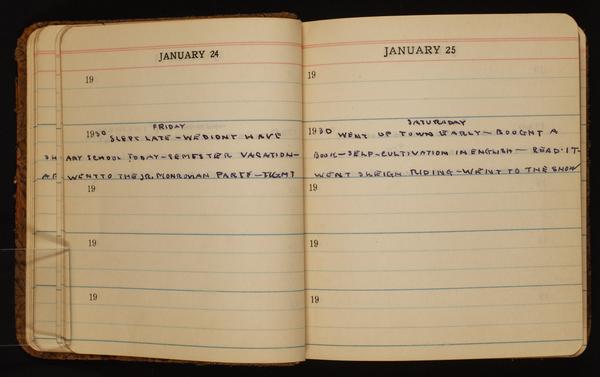 JANUARY 24
19
FRIDAY
1930 SLEPT LATE - WE DIDNT HAVE
ANY SCHOOL TODAY - SEMESTER VACATION -
WENT TO THE JR. MONROVIAN PARTY - TIGHT
19
19
19
19
JANUARY 25
19
SATURDAY
1930 WENT UP TOWN EARLY - BOUGHT A
BOOK - SELF-CULTIVATION IN ENGLISH - READ IT -
WENT SLEIGH RIDING - WENT TO THE SHOW
19
19
19